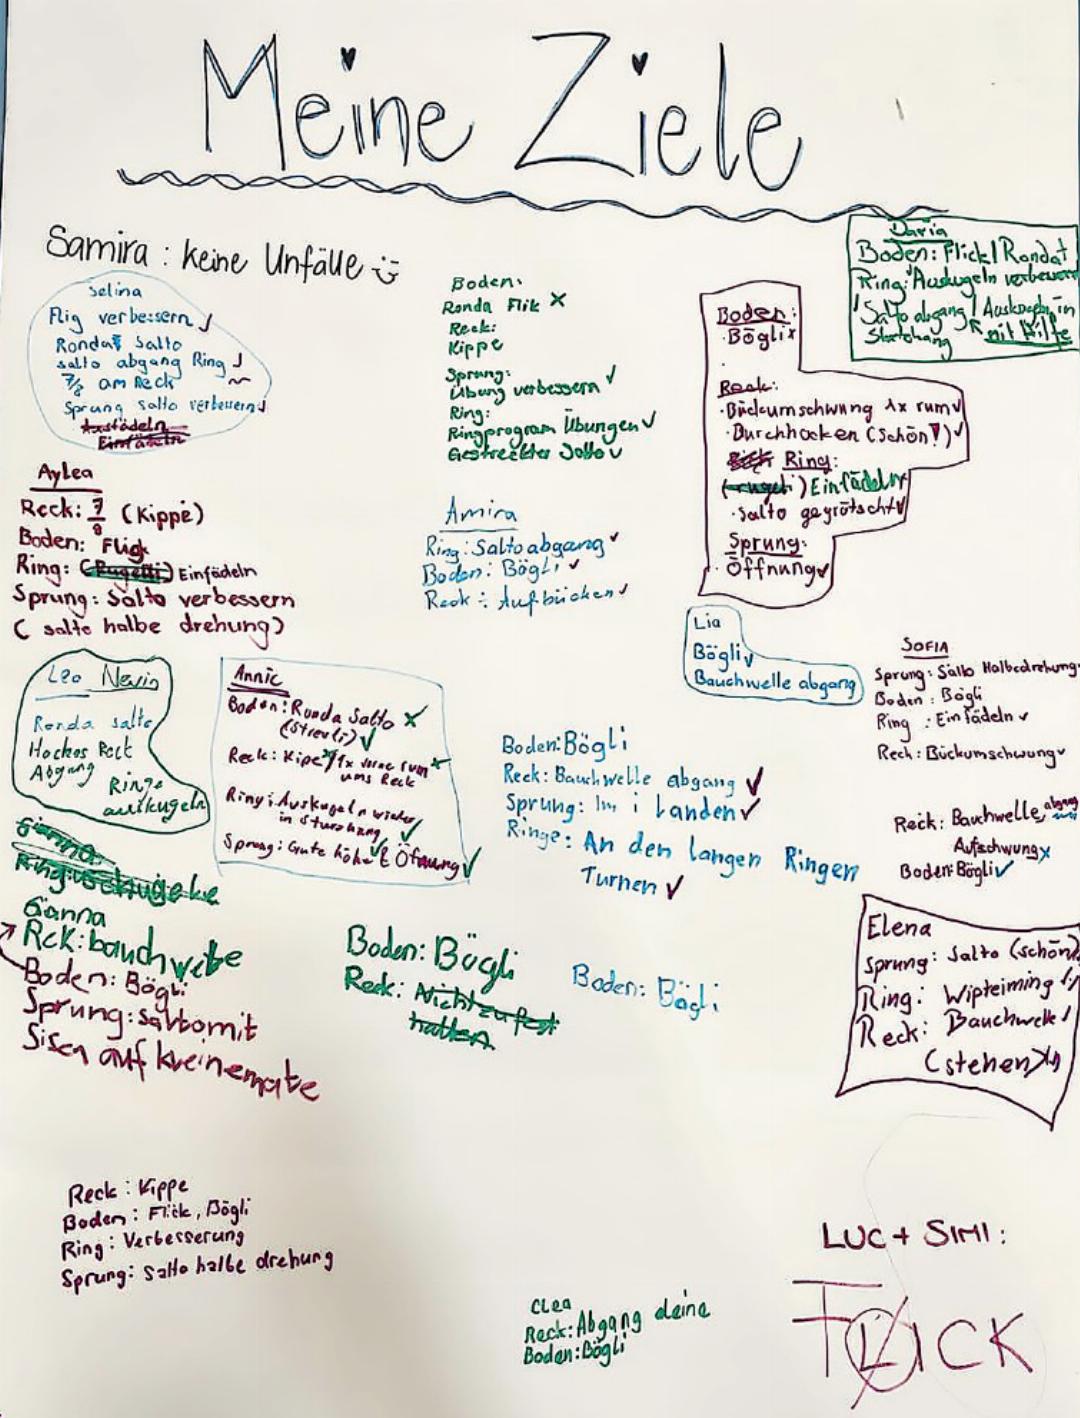 Meine Ziele
Samira : keine Unfälle
Selina
Flig verbessern
Ronda Salto
salto abgang Ring
7/8 am Reck
Sprung salto verbessern
Einfädeln
Boden:
Ronda Flik ✗
Reck:
Kippe
Sprung:
Übung verbessern ✓
Ring:
Ringprogram Übungen ✓
Gestreckter Salto ✓
Boden:
·Bögli ✗
Reck:
·Bückumschwung 1x rum ✓
·Durchhocken (schön!) ✓
Ring:
Einfädeln
·Salto gegrätscht ✓
Sprung:
Öffnung ✓
Daria
Boden: Flick / Rondat
Ring: Auskugeln verbessern
Salto abgang / in
Sturzhang mit Hilfe
Aylea
Reck: 7/8 (Kippe)
Boden: Flig
Ring: Einfädeln
Sprung: Salto verbessern
( salto halbe drehung)
Amira
Ring: Salto abgang ✓
Boden: Bögli ✓
Reck : Aufbücken ✓
Lia
Bögli ✓
Bauchwelle abgang
SOFIA
Sprung: Salto Halbedrehung
Boden : Bögli
Ring : Einfädeln ✓
Reck: Bückumschwung ✓
Leo Nevin
Ronda salto
Hockos Reck
Abgang
Ringe
auskugeln
Annic
Boden: Ronda Salto ✗
(Streuli) ✓
Reck: Kipe / 1x vorne rum
ums Reck
Ring: Auskugeln wieder
in sturzhang ✓
Sprung: Gute höhe & Öfnung ✓
Boden: Bögli
Reck: Bauchwelle abgang ✓
Sprung: Im i Landen ✓
Ringe: An den langen Ringen
Turnen ✓
Reck: Bauchwelle, abgang
Aufschwung ✗
Boden: Bögli ✓
Ganna
Rck: bauchwele
Boden: Bögli
Sprung: saltomit
Sisen auf kleinemate
Boden: Bögli
Reck: Nicht zu fest
halten
Boden: Bögli
Elena
Sprung: Salto (schön)
Ring: Wipteiming
Reck: Bauchwelle
(stehen)
Reck : Kippe
Boden : Flick, Bögli
Ring : Verbesserung
Sprung: salto halbe drehung
Clea
Reck: Abgang deine
Boden: Bögli
LUC + SIMI :
FLICK